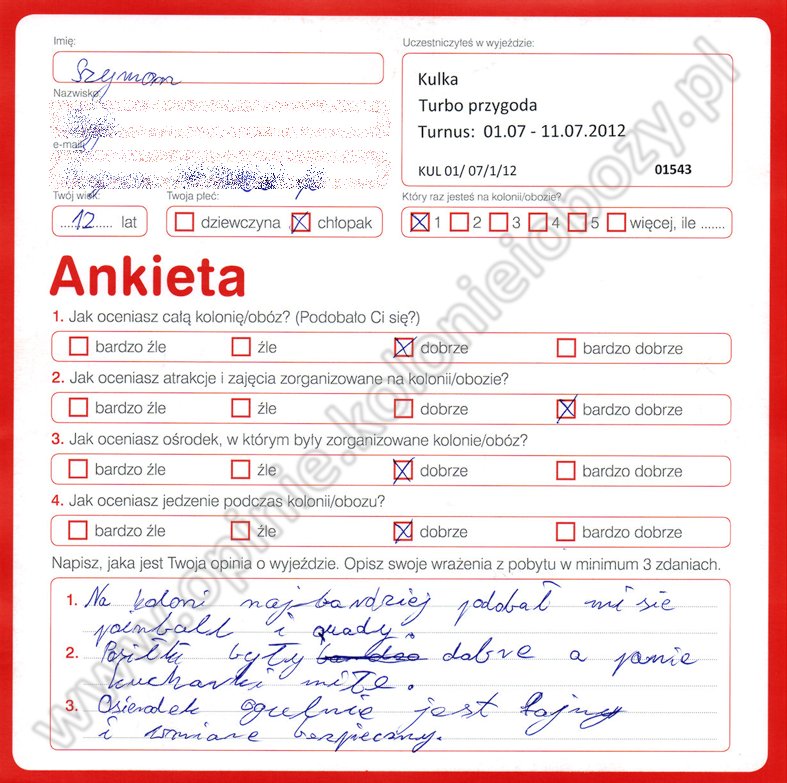 Imię:
Szymon
Nazwisko:
e-mail:
Twój wiek:
12 lat
Twoja płeć:
dziewczyna chłopak
Uczestniczyłeś w wyjeździe:
Kulka
Turbo przygoda
Turnus: 01.07 - 11.07.2012
KUL 01/ 07/1/12 01543
Który raz jesteś na kolonii/obozie?
1 2 3 4 5 więcej, ile .......
Ankieta
1. Jak oceniasz całą kolonię/obóz? (Podobało Ci się?)
bardzo źle źle dobrze bardzo dobrze
2. Jak oceniasz atrakcje i zajęcia zorganizowane na kolonii/obozie?
bardzo źle źle dobrze bardzo dobrze
3. Jak oceniasz ośrodek, w którym były zorganizowane kolonie/obóz?
bardzo źle źle dobrze bardzo dobrze
4. Jak oceniasz jedzenie podczas kolonii/obozu?
bardzo źle źle dobrze bardzo dobrze
Napisz, jaka jest Twoja opinia o wyjeździe. Opisz swoje wrażenia z pobytu w minimum 3 zdaniach.
1. Na koloni najbardziej podobał mi sie
painball i quady
2. Posiłki były dobre a panie
kucharki miłe.
3. Osierodek ogulnie jest fajny
i wmiare bezpieczny.
www.opinie.kolonieiobozy.pl